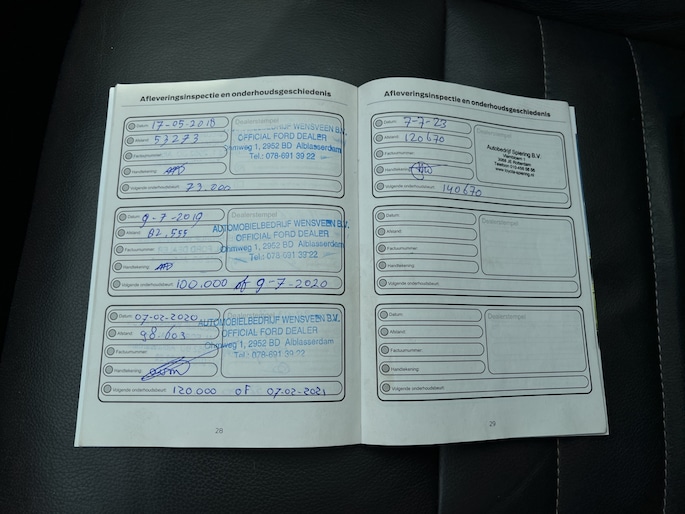 Afleveringsinspectie en onderhoudsgeschiedenis
Datum: 17-05-2018
Afstand: 53273
Factuurnummer:
Handtekening:
Volgende onderhoudsbeurt: 73.000
Dealerstempel
WENSVEEN B.V.
OFFICIAL FORD DEALER
Ohmweg 1, 2952 BD Alblasserdam
Tel.: 078-691 39 22
Datum: 9-7-2019
Afstand: 82,555
Factuurnummer:
Handtekening:
Volgende onderhoudsbeurt: 100.000 of 9-7-2020
Dealerstempel
AUTOMOBIELBEDRIJF WENSVEEN B.V.
OFFICIAL FORD DEALER
Ohmweg 1, 2952 BD Alblasserdam
Tel.: 078-691 39 22
Datum: 07-02-2020
Afstand: 98.603
Factuurnummer:
Handtekening:
Volgende onderhoudsbeurt: 120.000 of 07-02-2021
Dealerstempel
AUTOMOBIELBEDRIJF WENSVEEN B.V.
OFFICIAL FORD DEALER
Ohmweg 1, 2952 BD Alblasserdam
Tel.: 078-691 39 22
28
Afleveringsinspectie en onderhoudsgeschiedenis
Datum: 7-7-23
Afstand: 120670
Factuurnummer:
Handtekening:
Volgende onderhoudsbeurt: 140670
Autobedrijf Spiering B.V.
Rotterdam
Datum:
Afstand:
Factuurnummer:
Handtekening:
Volgende onderhoudsbeurt:
Dealerstempel
Datum:
Afstand:
Factuurnummer:
Handtekening:
Volgende onderhoudsbeurt:
Dealerstempel
29